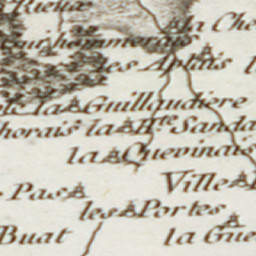 Rieux
la Che
les Aplais
la Guillaudiere
horais la Hte Sanda
la Quevinais
Pas
Ville
les Portes
Buat
la Gue